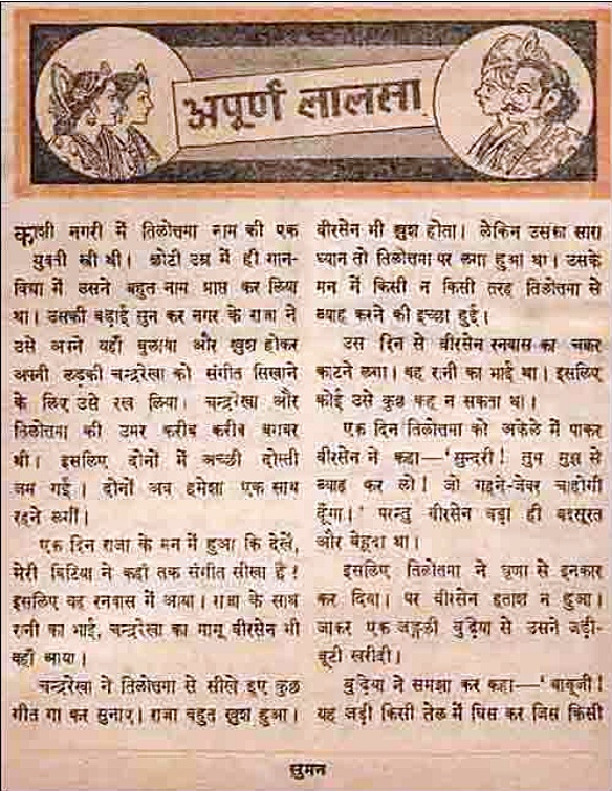 अपूर्ण लालसा
काशी नगरी में तिलोत्तमा नाम की एक
युवती स्त्री थी। छोटी उम्र में ही गान-
विद्या में उसने बहुत नाम प्राप्त कर लिया
था। उसकी बड़ाई सुन कर नगर के राजा ने
उसे अपने यहाँ बुलाया और खुश होकर
अपनी लड़की चन्द्ररेखा को संगीत सिखाने
के लिए उसे रख लिया। चन्द्ररेखा और
तिलोत्तमा की उमर करीब करीब बराबर
थी। इसलिए दोनों में अच्छी दोस्ती
जम गई। दोनों अब हमेशा एक साथ
रहने लगीं।
एक दिन राजा के मन में हुआ कि देखें,
मेरी बिटिया ने कहाँ तक संगीत सीखा है!
इसलिए वह रनवास में आया। राजा के साथ
रानी का भाई, चन्द्ररेखा का मामू वीरसेन भी
वहाँ आया।
चन्द्ररेखा ने तिलोत्तमा से सीखे हुए कुछ
गीत गा कर सुनाए। राजा बहुत खुश हुआ।
वीरसेन भी खुश होता। लेकिन उसका सारा
ध्यान तो तिलोत्तमा पर लगा हुआ था। उसके
मन में किसी न किसी तरह तिलोत्तमा से
ब्याह करने की इच्छा हुई।
उस दिन से वीरसेन रनवास का चक्कर
काटने लगा। वह रानी का भाई था। इसलिए
कोई उसे कुछ कह न सकता था।
एक दिन तिलोत्तमा को अकेले में पाकर
वीरसेन ने कहा—'सुन्दरी! तुम मुझ से
ब्याह कर लो! जो गहने-जेवर चाहोगी
दूँगा।' परन्तु वीरसेन बड़ा ही बदसूरत
और बेहूदा था।
इसलिए तिलोत्तमा ने घृणा से इनकार
कर दिया। पर वीरसेन हताश न हुआ।
जाकर एक जङ्गली बुढ़िया से उसने जड़ी-
बूटी खरीदी।
बुढ़िया ने समझा कर कहा—'बाबूजी!
यह जड़ी किसी तेल में घिस कर जिस किसी
सुमन